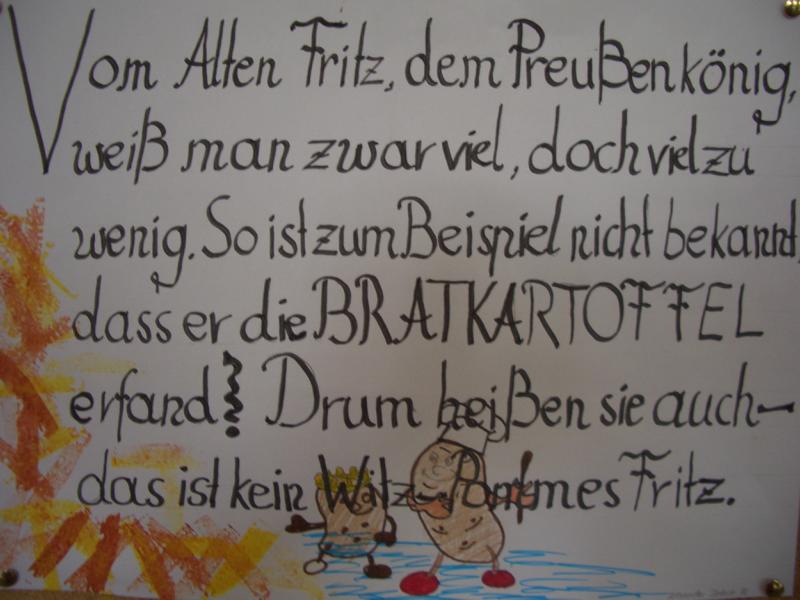 Vom Alten Fritz, dem Preußenkönig,
weiß man zwar viel, doch viel zu
wenig. So ist zum Beispiel nicht bekannt,
dass er die BRATKARTOFFEL
erfand! Drum heißen sie auch-
das ist kein Witz-Pommes Fritz.